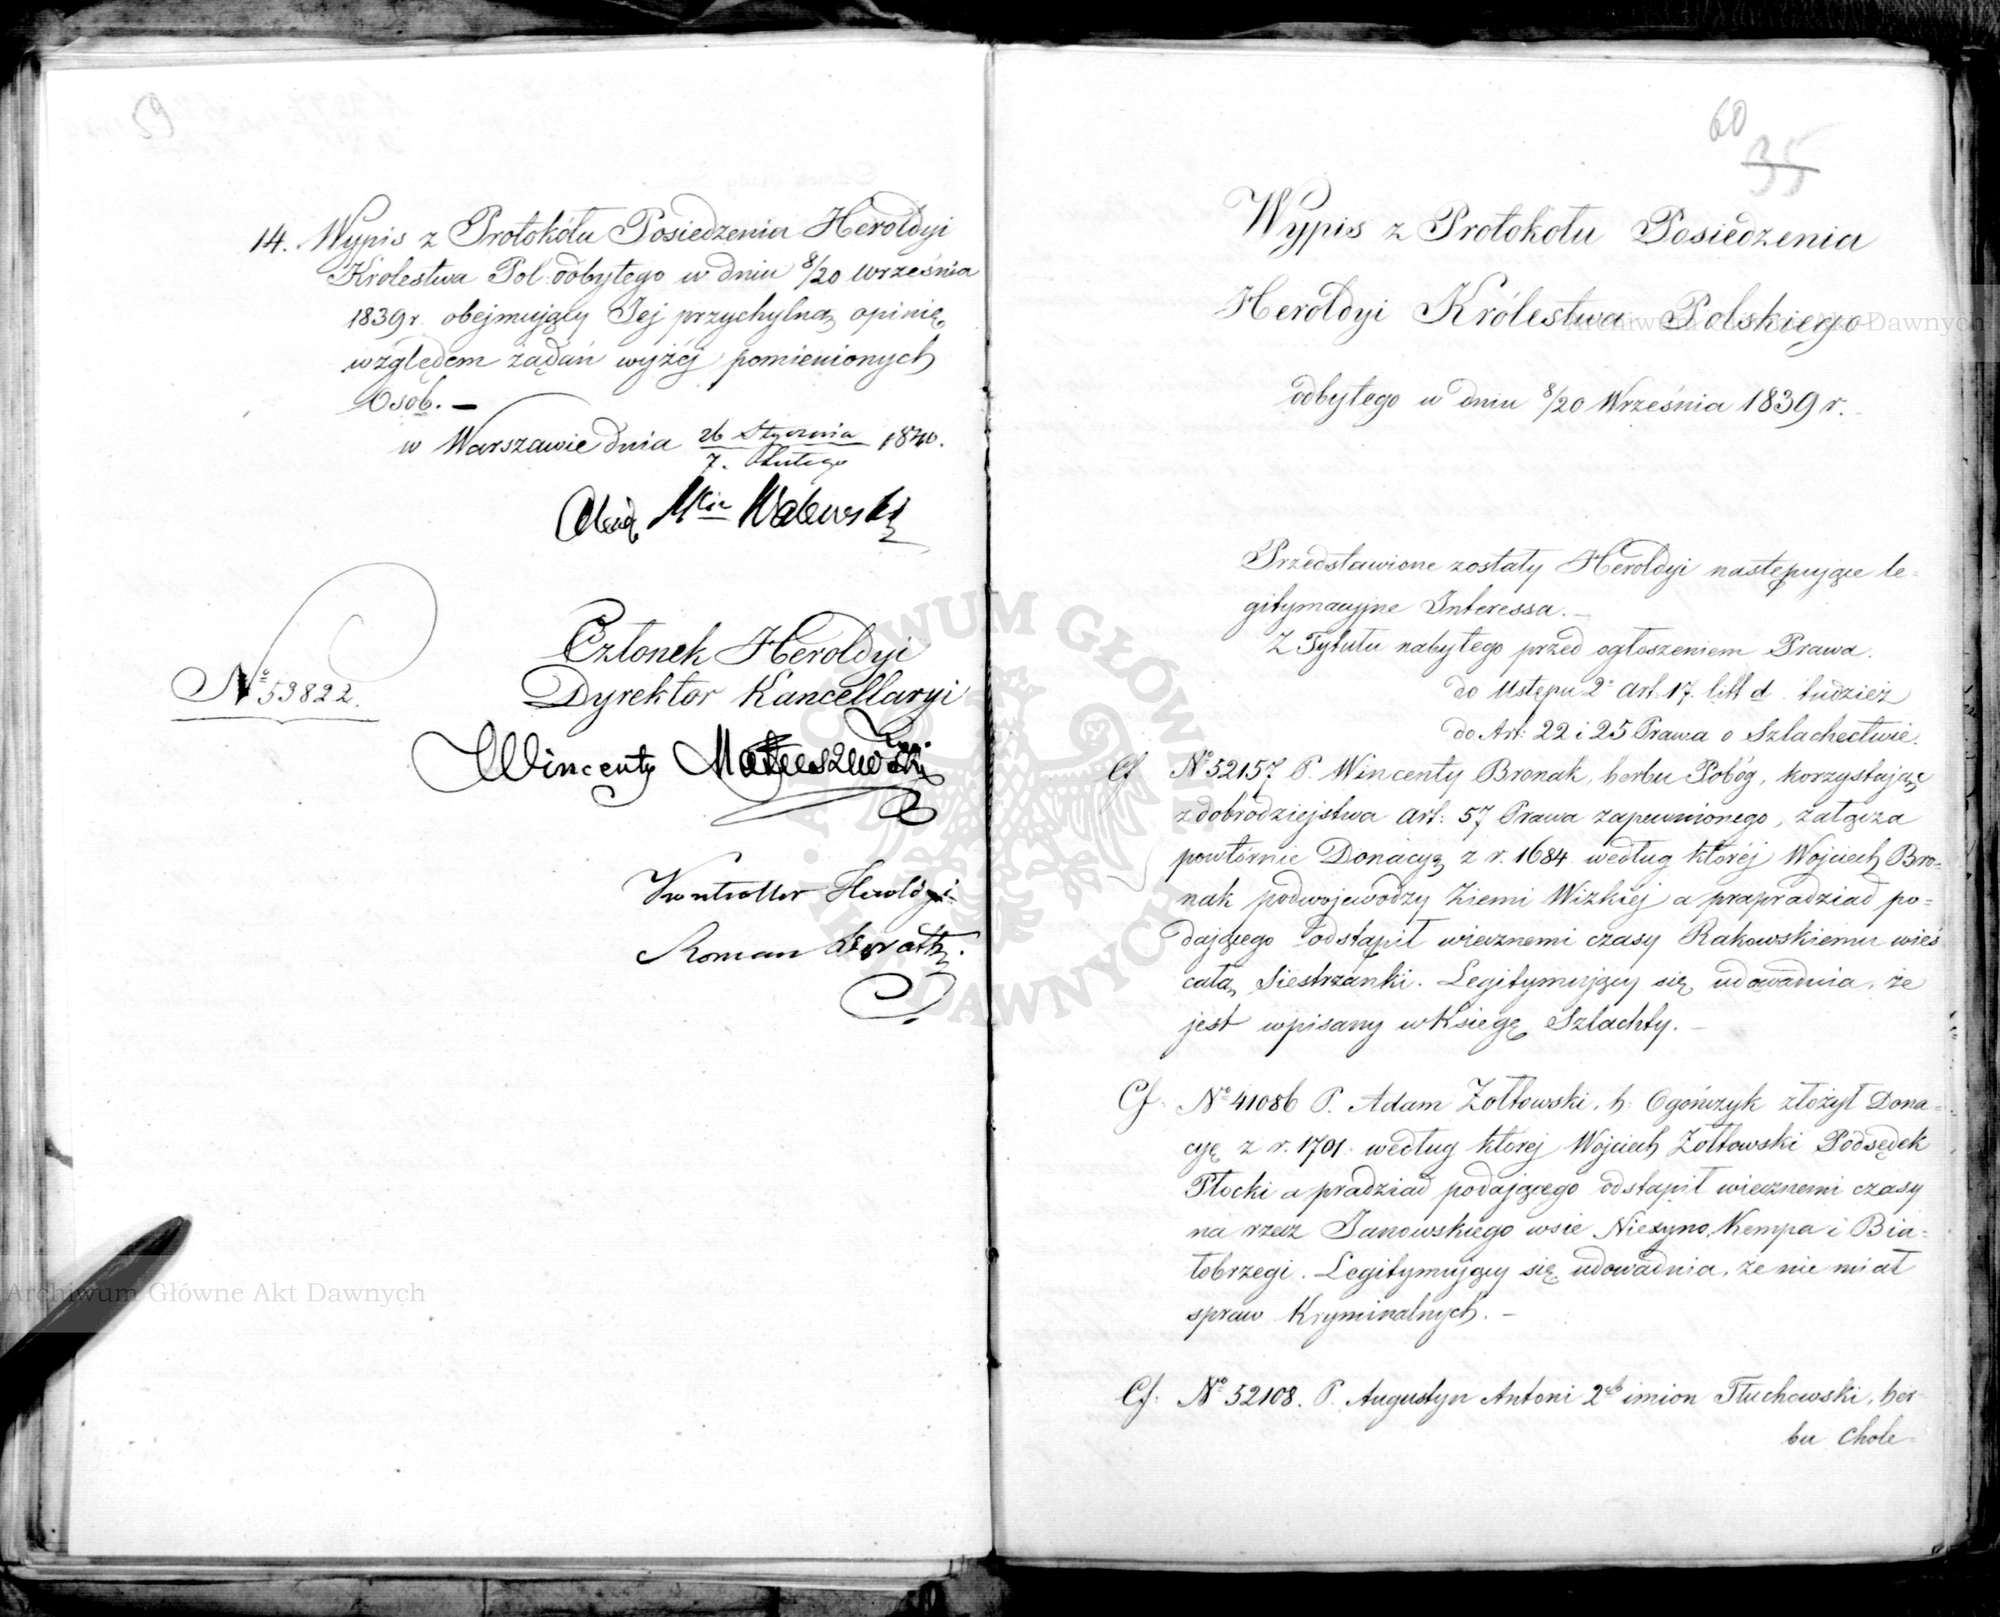 59
14. Wypis z Protokółu Posiedzenia Heroldyi
Królestwa Pol. odbytego w dniu 8/20 września
1839 r. obejmujący Jej przychylną opinię
względem żądań wyżéj pomienionych
Osób. —
w Warszawie dnia 26 Stycznia / 7. Lutego 1840.
Walewski
Członek Heroldyi
Dyrektor Kancellaryi
№ 53822.
Wincenty Matuszewski
Kontroller Heroldyi
Roman
60
35
Wypis z Protokołu Posiedzenia
Heroldyi Królestwa Polskiego
odbytego w dniu 8/20 Września 1839 r.
Przedstawione zostały Heroldyi następujące le-
gitymacyjne Interessa. —
Z Tytułu nabytego przed ogłoszeniem Prawa.
do Ustępu 2° Art. 17. litt d. tudzież
do Art: 22 i 25 Prawa o Szlachectwie.
Cf. № 52157 P. Wincenty Bronak, herbu Pobóg, korzystając
z dobrodziejstwa Art: 57 Prawa zapewnionego, załącza
powtórnie Donacyą z r. 1684 według któréj Wojciech Bro-
nak podwojewodzy Ziemi Wizkiéj a prapradziad po-
dającego odstąpił wiecznemi czasy Rakowskiemu wieś
całą Siestrzanki. Legitymujący się udowadnia, że
jest wpisany w Księgę Szlachty. —
Cf. № 41086 P. Adam Zółtowski, h: Ogończyk złożył Dona-
cyę z r. 1701. według ktorej Wojciech Zółtowski Podsędek
Płocki a pradziad podającego odstąpił wiecznemi czasy
na rzecz Janowskiego wsie Niezyno, Kempa i Bia-
łobrzegi. Legitymujący się udowadnia, że nie miał
spraw Kryminalnych. —
Cf. № 52108. P. Augustyn Antoni 2ch imion Tłuchowski, her-
bu Chole-
Archiwum Główne Akt Dawnych
Archiwum Główne Akt Dawnych
ARCHIWUM GŁÓWNE AKT DAWNYCH